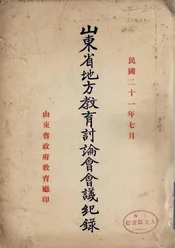 民國二十一年七月
山東省地方教育討論會會議紀錄
山東省政府教育廳印